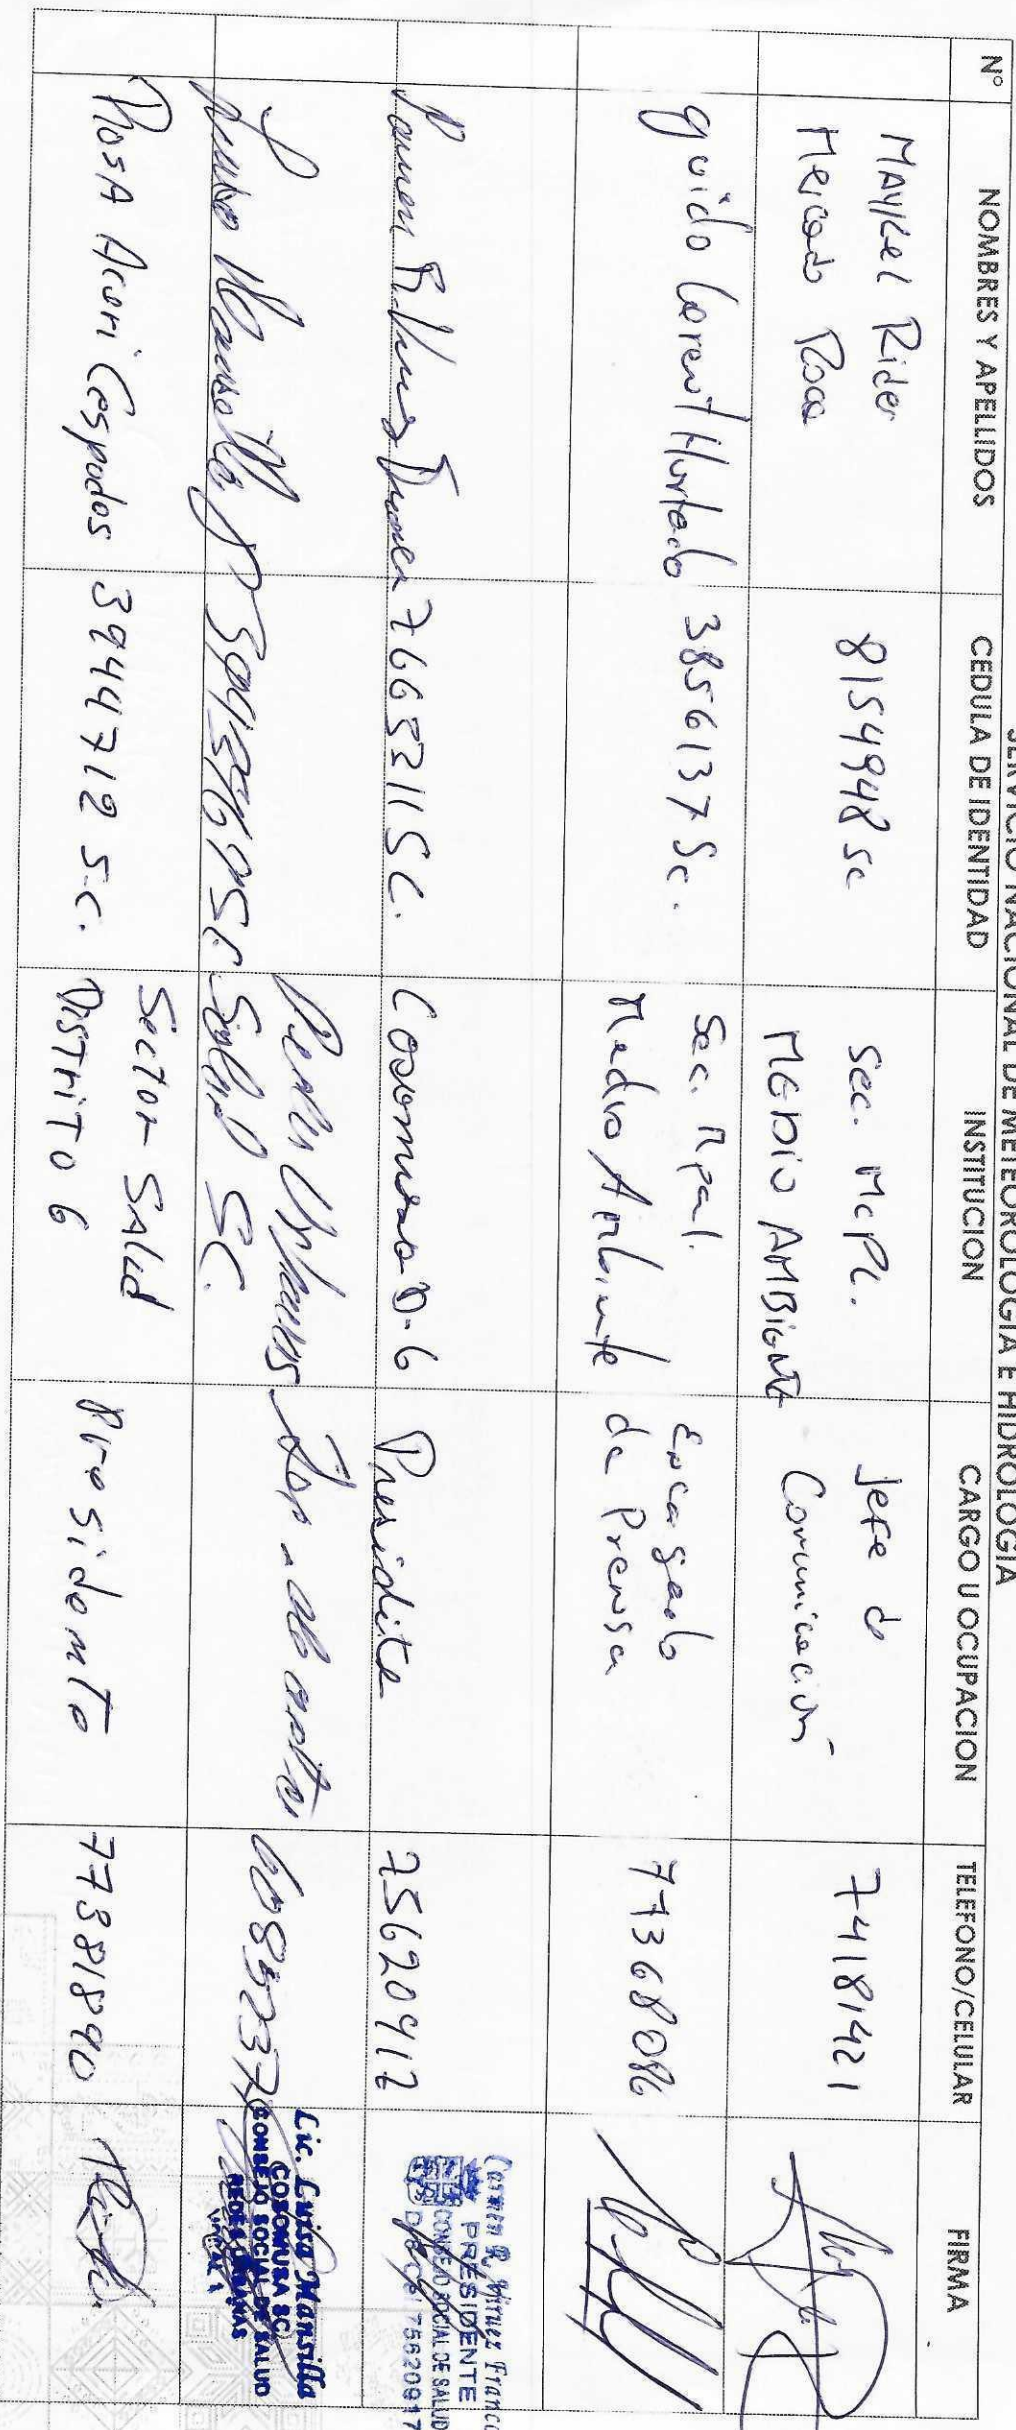 SERVICIO NACIONAL DE METEOROLOGIA E HIDROLOGIA
N° NOMBRES Y APELLIDOS CEDULA DE IDENTIDAD INSTITUCION CARGO U OCUPACION TELEFONO/CELULAR FIRMA
MAYKel Rider
Mercado Roca
8154948 sc
Sec. McPl.
MEDIO AMBIENTE
Jefe de
Comunicación
74181421
guido Carent Hurtado
3856137 Sc.
Sec. Mpal.
Medio Ambiente
Encargado
de Prensa
77368086
Carmen R.
7665211 SC.
Cosomusa D-6
Presidite
75620917
Carmen R. Viruez Franco
PRESIDENTE
CONSEJO SOCIAL DE SALUD
75620917
Luisa Mansilla
Redes Urbanas
Salud SC.
Lic. Luisa Mansilla
COSOMUSA SC
CONSEJO SOCIAL DE SALUD
REDES URBANAS
VOCAL 1
RosA Acori Cespedes
3944712 S.C.
Sector SALUd
DISTRITO 6
Presidenta
77381890